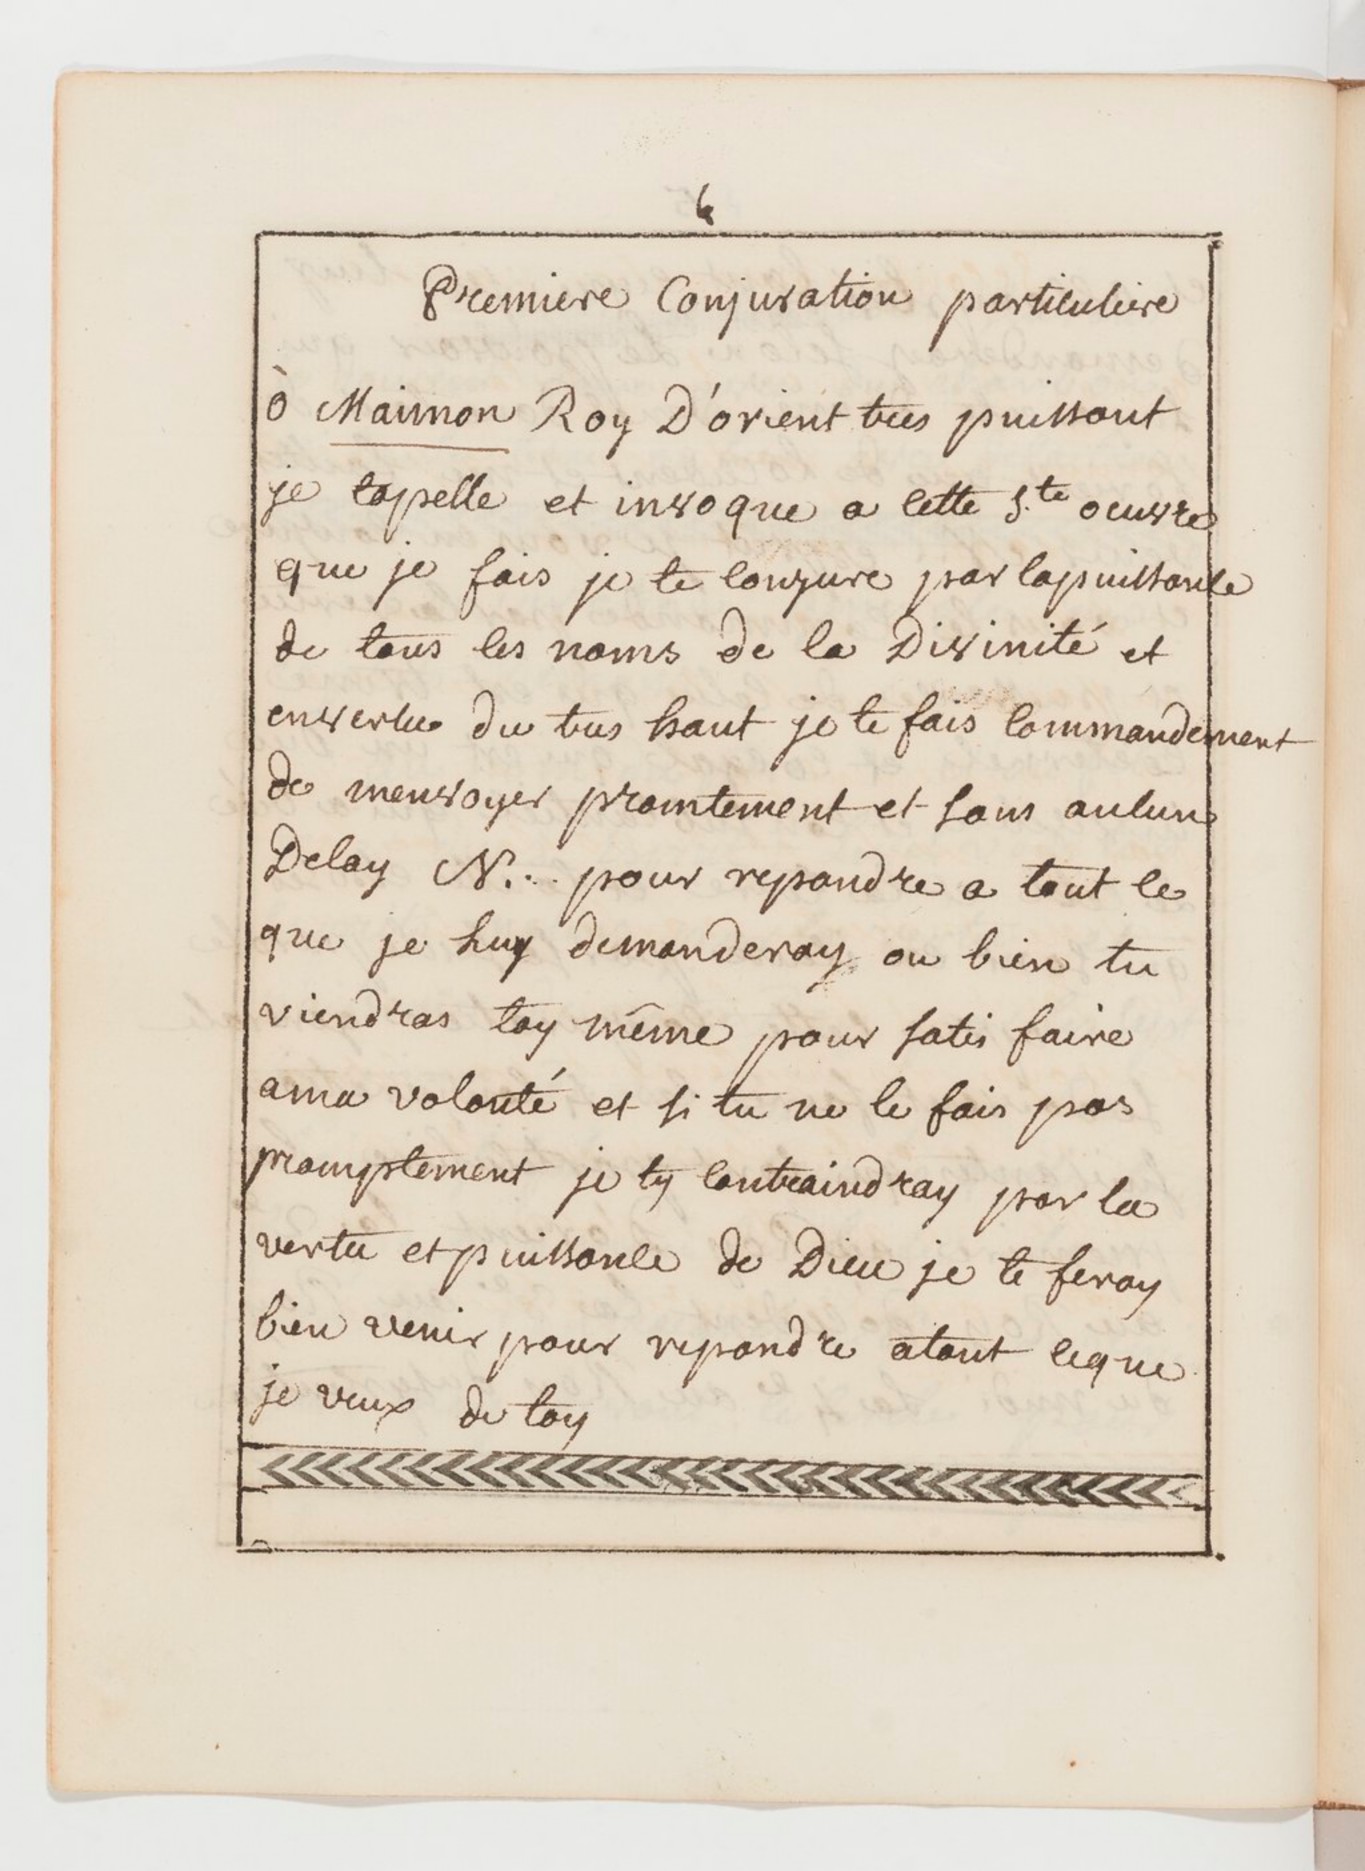 6
Premiere Conjuration particuliere
ò Maimon Roy D'orient tres puissant
je tapelle et invoque a cette S.te oeuvre
que je fais je te conjure par lapuissance
de tous les noms de la Divinité et
envertu du tres haut je te fais commandement
de menvoyer promtement et sans aucun
Delay N... pour repondre a tout ce
que je luy demanderay ou bien tu
viendras toy même pour satis faire
ama volonté et si tu ne le fais pas
promptement je ty contraindray par la
vertu et puissance de Dieu je te feray
bien venir pour repondre atout ceque
je veux de toy